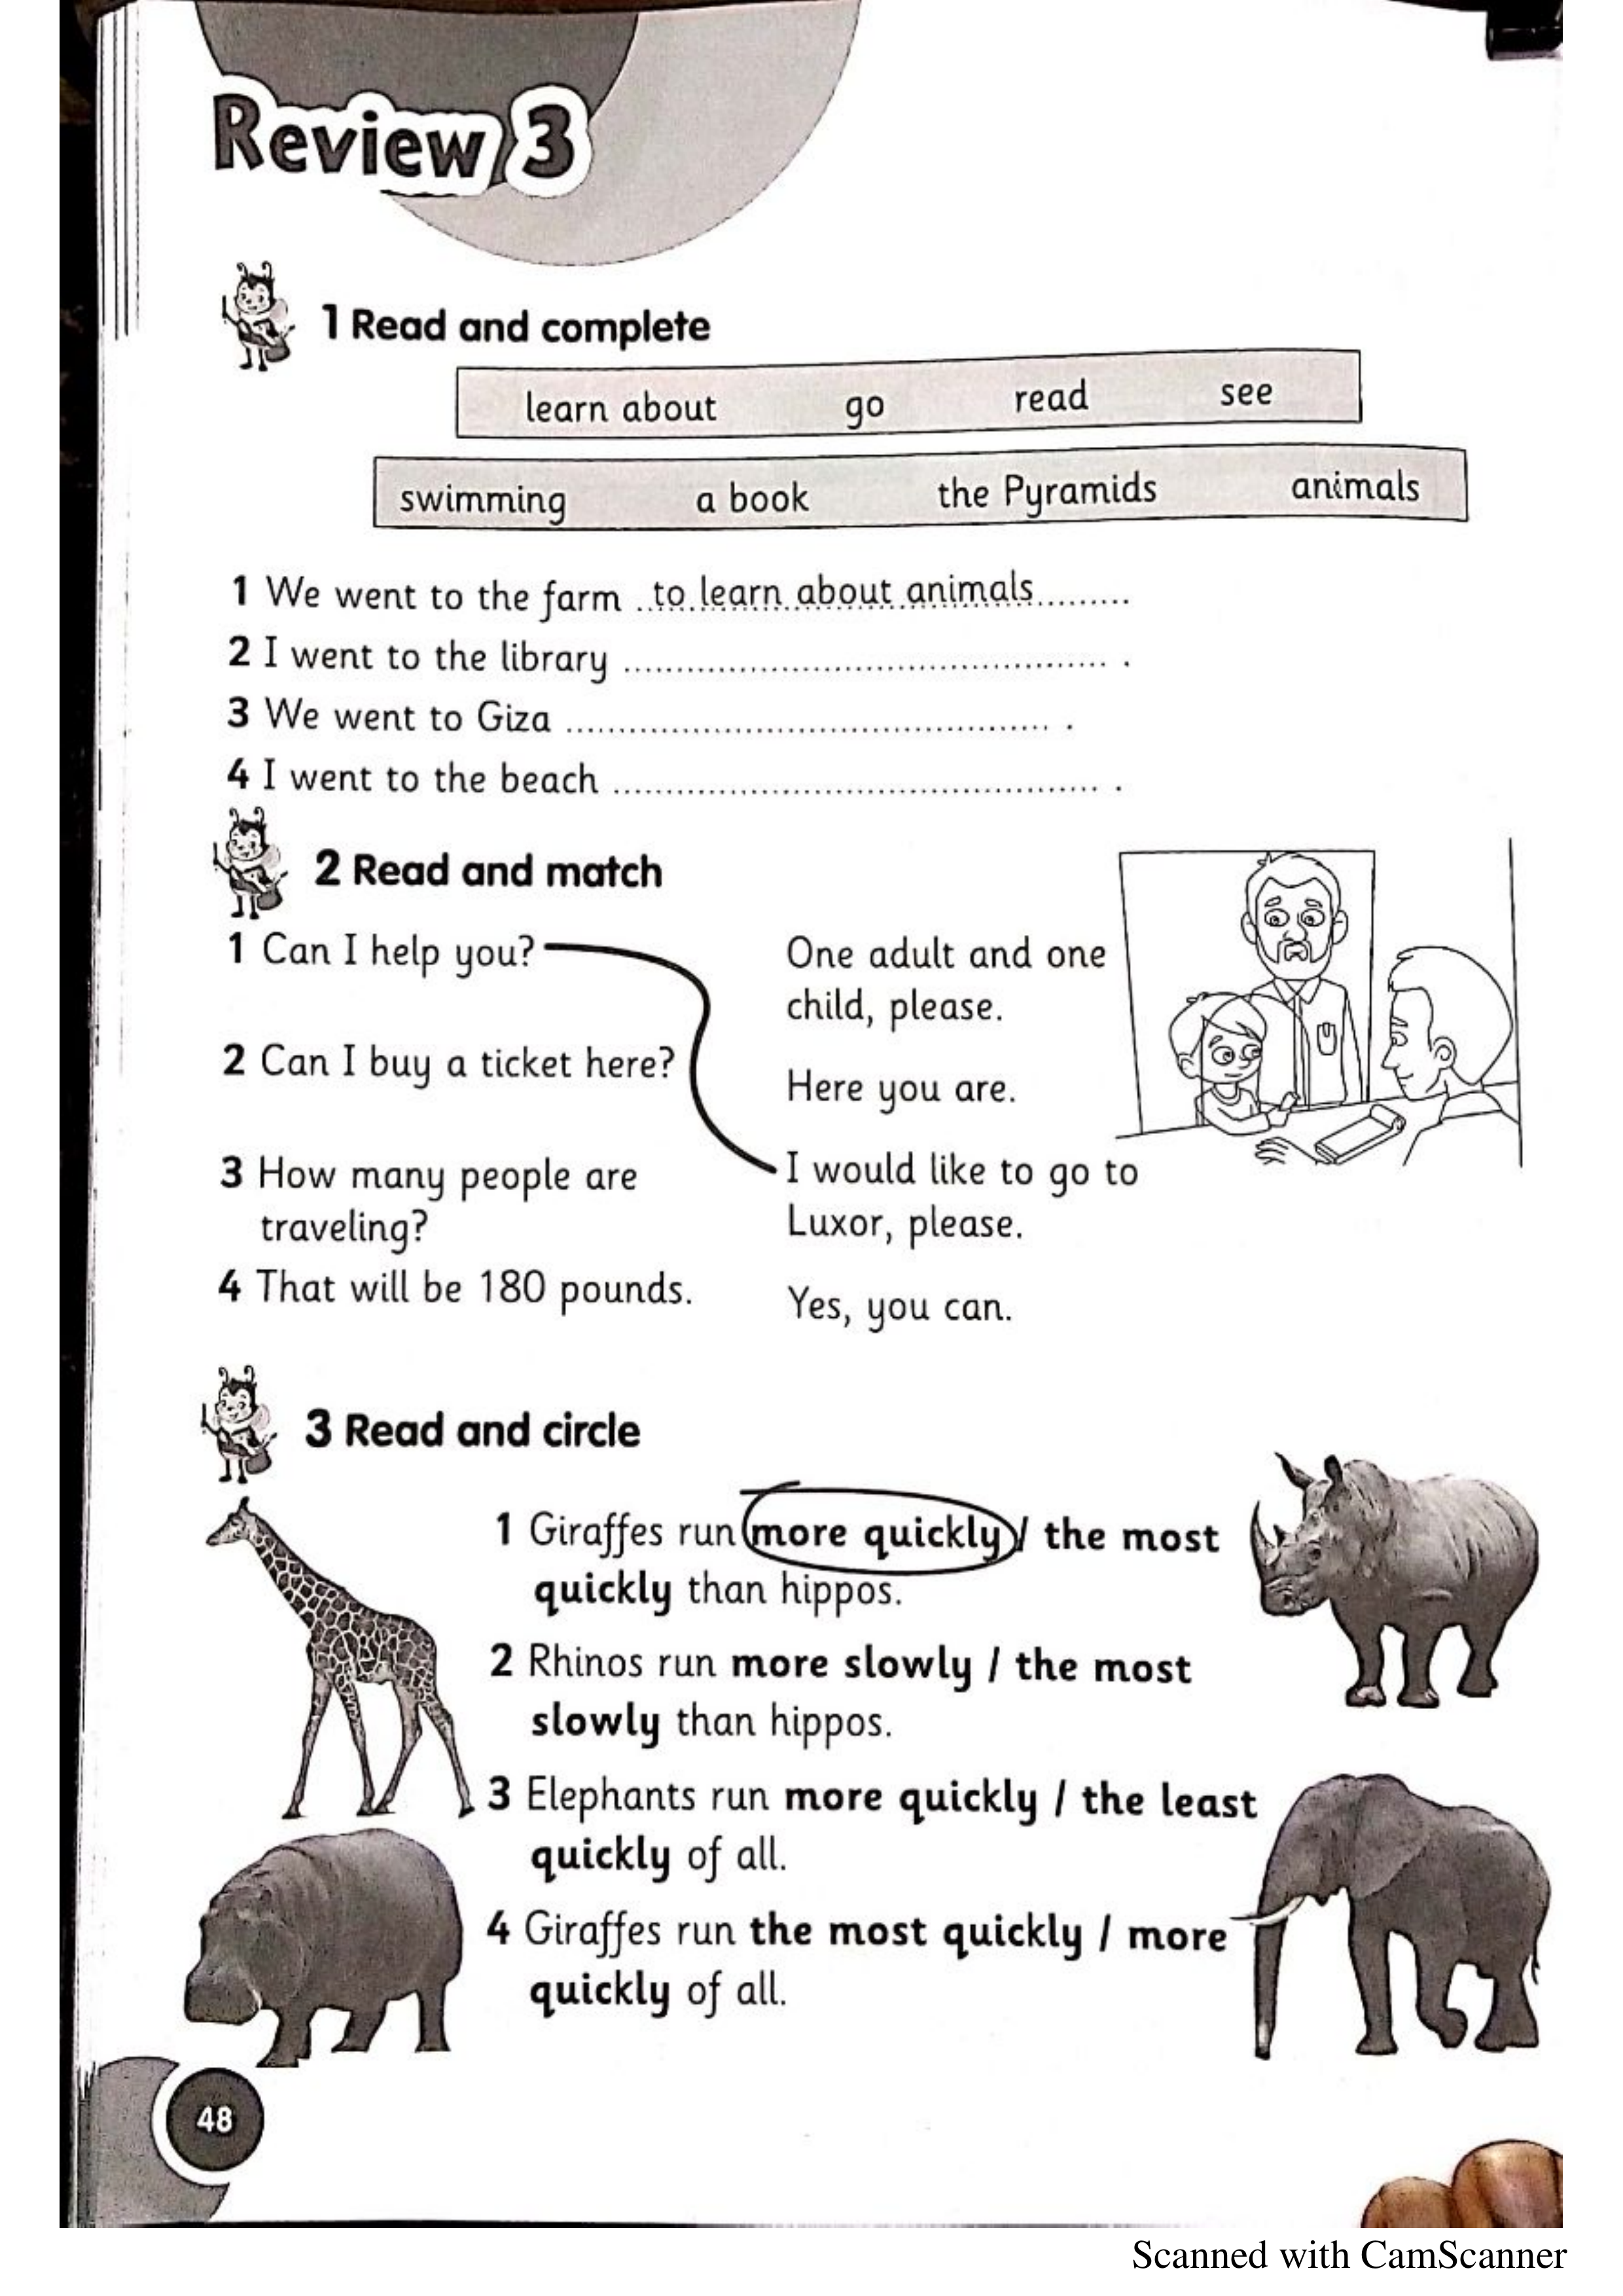 Review 3
1 Read and complete
learn about go read see
swimming a book the Pyramids animals
1 We went to the farm ..to learn about animals.........
2 I went to the library ............................................... .
3 We went to Giza ............................................... .
4 I went to the beach ............................................... .
2 Read and match
1 Can I help you?
2 Can I buy a ticket here?
3 How many people are
traveling?
4 That will be 180 pounds.
One adult and one
child, please.
Here you are.
I would like to go to
Luxor, please.
Yes, you can.
3 Read and circle
1 Giraffes run more quickly / the most
quickly than hippos.
2 Rhinos run more slowly / the most
slowly than hippos.
3 Elephants run more quickly / the least
quickly of all.
4 Giraffes run the most quickly / more
quickly of all.
48
Scanned with CamScanner